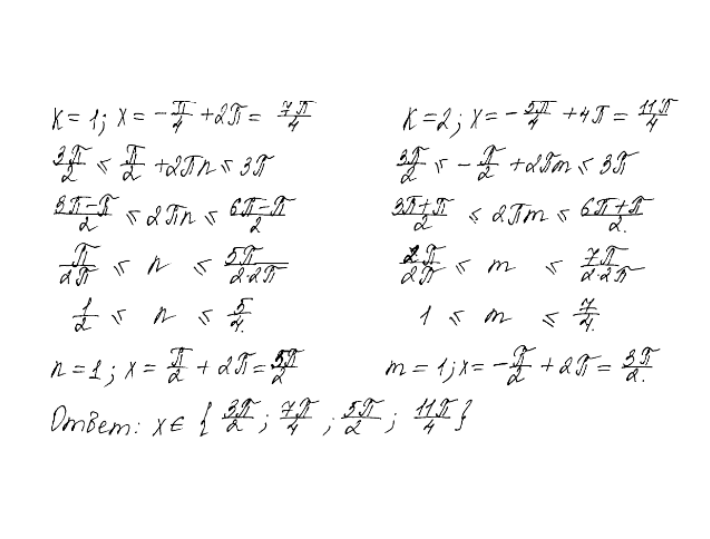 K = 1; x = -π/4 + 2π = 7π/4
3π/2 ⩽ π/2 + 2πn ⩽ 3π
(3π-π)/2 ⩽ 2πn ⩽ (6π-π)/2
π/2π ⩽ n ⩽ 5π/(2·2π)
1/2 ⩽ n ⩽ 5/4.
n = 1; x = π/2 + 2π = 5π/2
K = 2; x = -5π/4 + 4π = 11π/4
3π/2 ⩽ -π/2 + 2πm ⩽ 3π
(3π+π)/2 ⩽ 2πm ⩽ (6π+π)/2.
2π/2π ⩽ m ⩽ 7π/(2·2π)
1 ⩽ m ⩽ 7/4.
m = 1; x = -π/2 + 2π = 3π/2.
Ответ: x ∈ {3π/2; 7π/4; 5π/2; 11π/4}